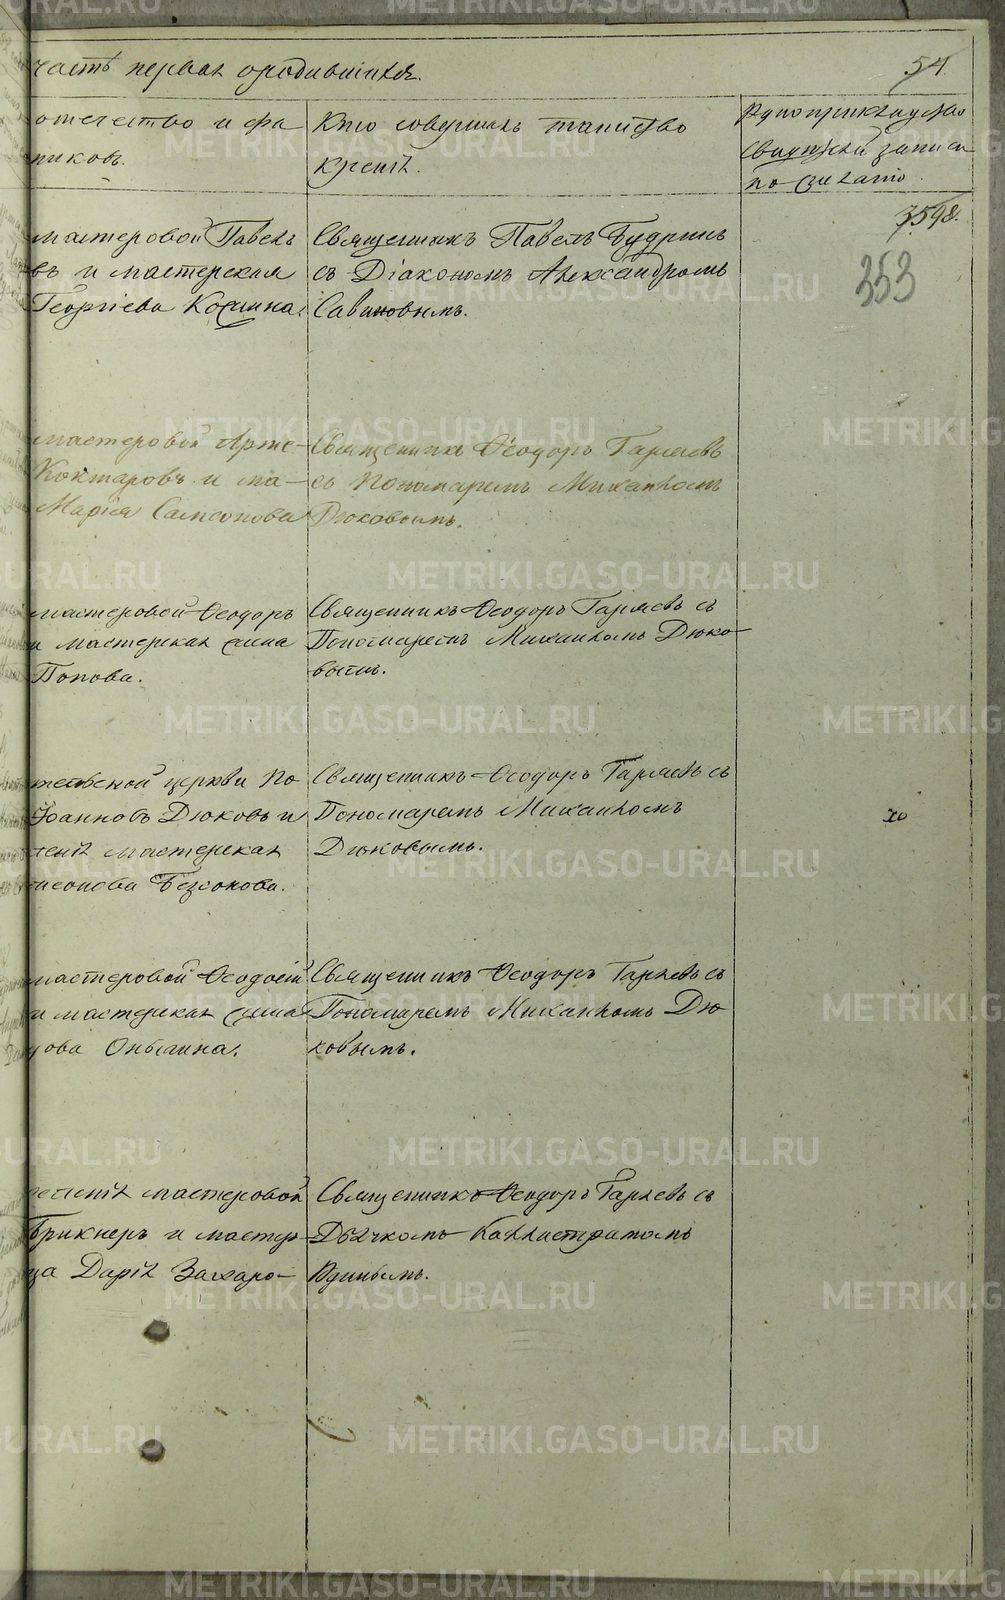 часть первая ородившихся.
54.
отечество и фа
никовъ.
Кто совершалъ таинство
крещ.
Рукоприкладство
свидѣтелей записи
по желанію.
3598.
353
мастеровой Павелъ
въ и мастерская
Георгіева Косшина.
Священникъ Павелъ Будринъ
съ Діакономъ Александромъ
Савиновымъ.
мастеровой Арте-
Коктаровъ и ма-
Марія Самсонова
Священникъ Ѳеодоръ Гаряевъ
съ Пономаремъ Михаиломъ
Дюковымъ.
мастеровой Ѳеодоръ
и мастерская Анна
Попова.
Священникъ Ѳеодоръ Гаряевъ съ
Пономаремъ Михаиломъ Дюко-
вымъ.
церкви По
Іоанновъ Дюковъ и
мастерская
Безсонова.
Священникъ Ѳеодоръ Гаряевъ съ
Пономаремъ Михаиломъ
Дюковымъ.
мастеровой Ѳеодосій
и мастерская Анна
Священникъ Ѳеодоръ Гаряевъ съ
Пономаремъ Михаиломъ Дю
ковымъ.
мастеровой
Брикнеръ и мастер-
ца Дарія Захаро-
Священникъ Ѳеодоръ Гаряевъ съ
Дьячкомъ Каллистратомъ
Юдинымъ.
METRIKI.GASO-URAL.RU